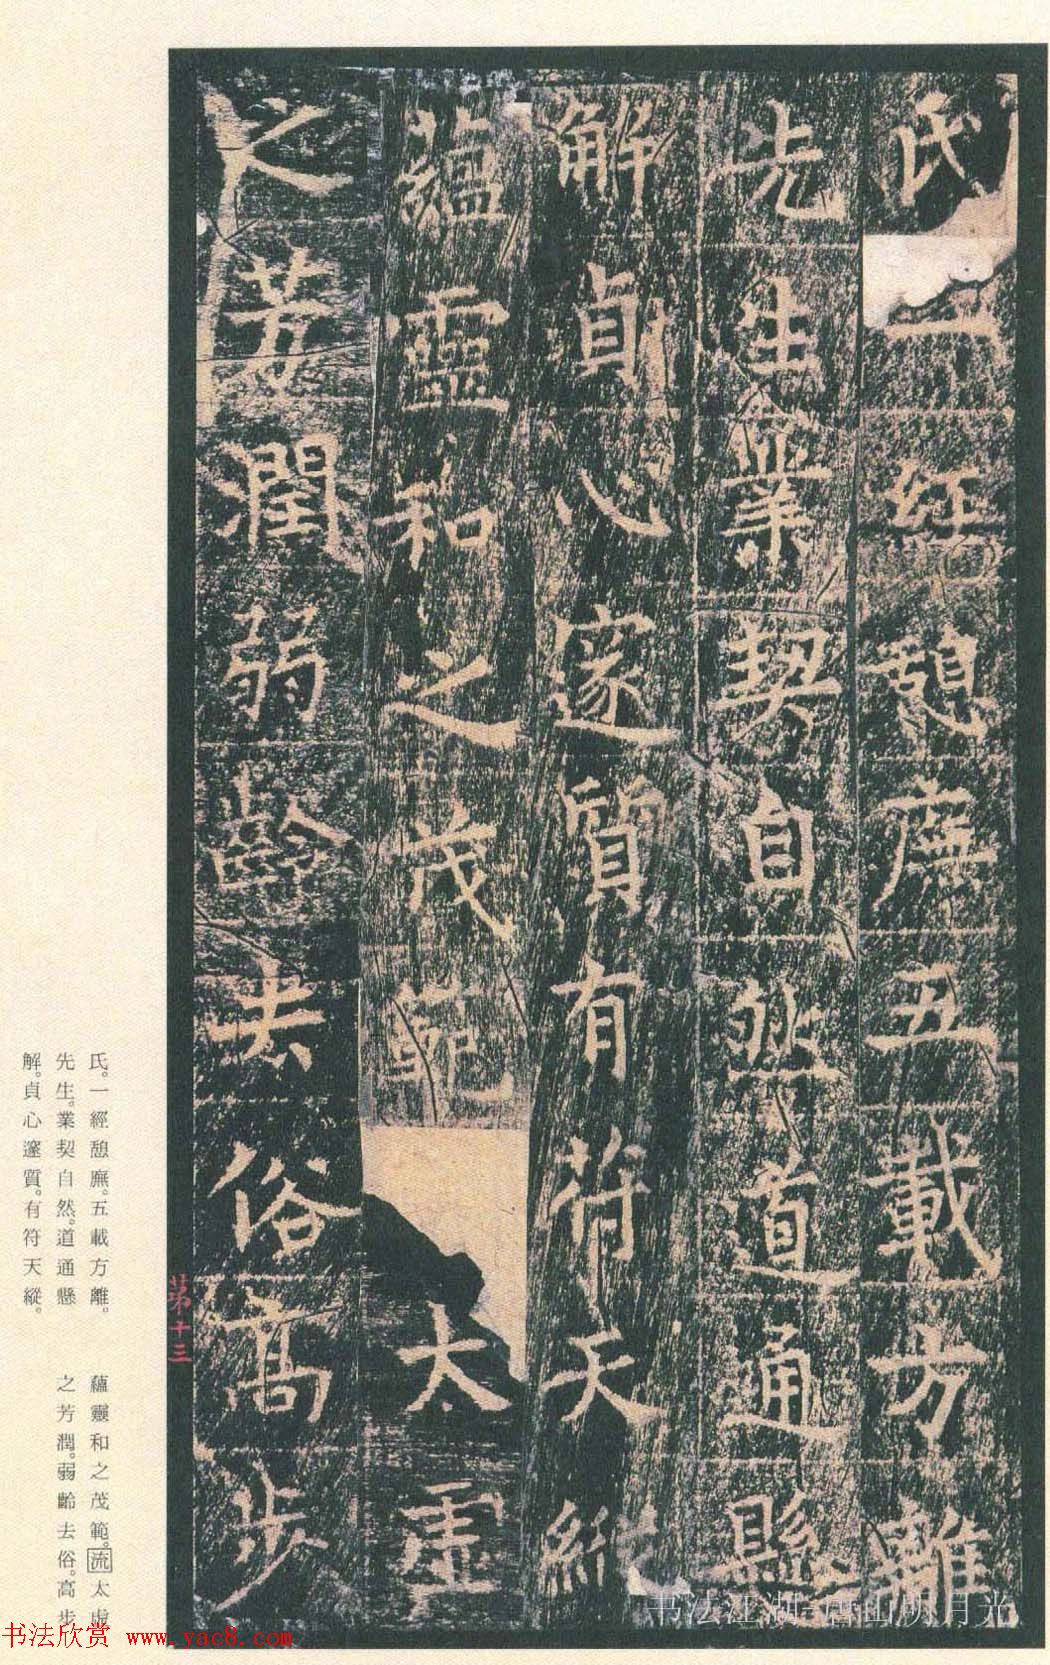 氏一經憩廡五載方離
先生業契自然道通懸
解貞心邃質有符天縱
蘊靈和之茂範太虛
之芳潤弱齡去俗高步
第十三
氏。一經憩廡。五載方離。
先生。業契自然。道通懸
解。貞心邃質。有符天縱。
蘊靈和之茂範。流太虛
之芳潤。弱齡去俗。高步
书法江湖-唐山明月光
书法欣赏 www.yac8.com